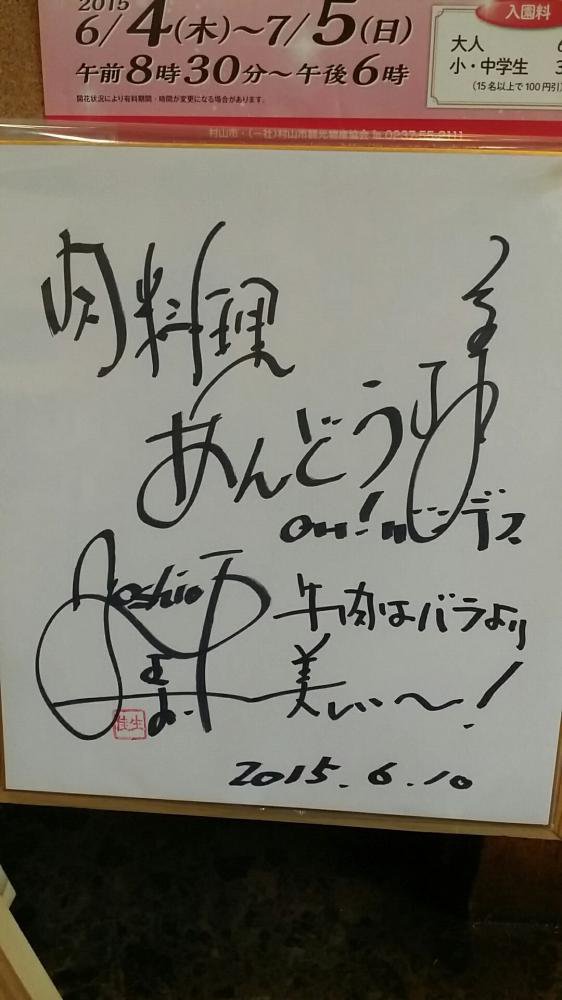 2015
6/4(木)～7/5(日)
午前8時30分～午後6時
開花状況により有料期間・時間が変更になる場合があります。
入園料
大人 6
小・中学生 3
(15名以上で100円引
村山市・(一社)村山市観光物産協会 ℡ 0237-55-2111
肉料理
あんどう
デス
牛肉はバラより
美しい～!
Yoshio
佳生
2015.6.10